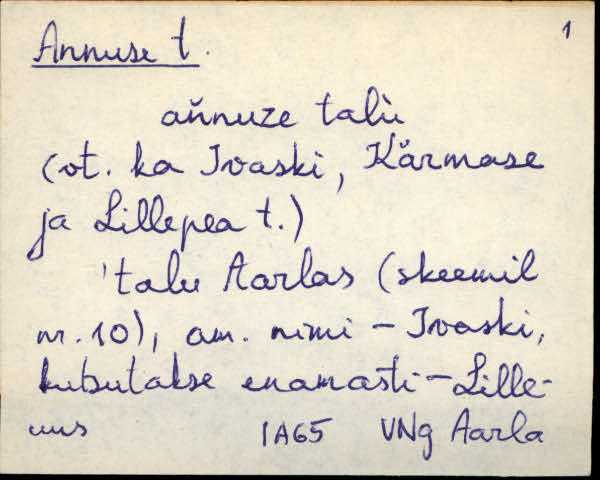 Annuse t. 1
ańnuze talù
(vt. ka Ivaski, Kärmase
ja Lillepea t.)
'talu Aarlas (skeemil
nr. 10), am. nimi - Ivaski,
kutsutakse enamasti - Lille-
uus IA65 VNg Aarla